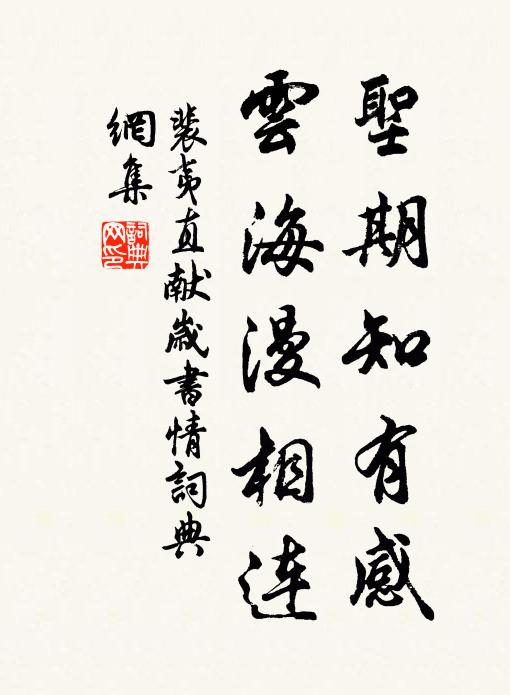 聖期知有感
雲海漫相連
裴夷直献歲書情詞典
網集
詞典
网印